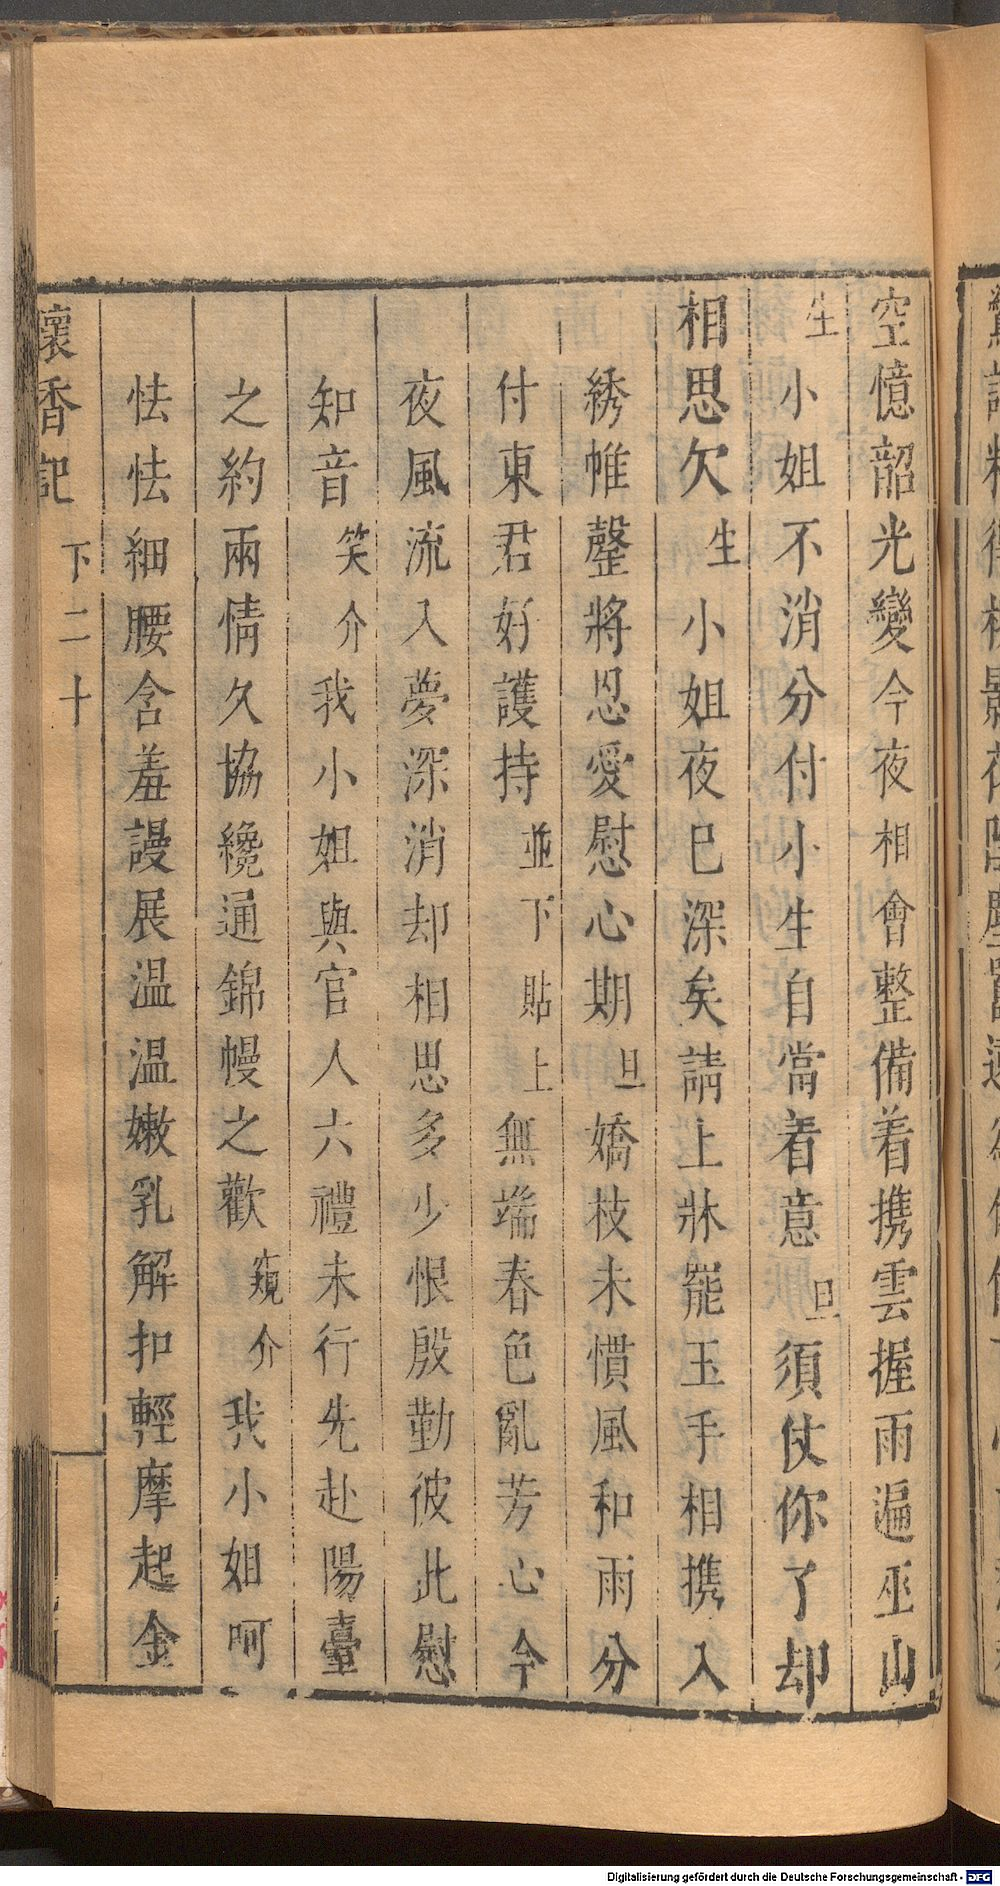 空憶韶光變今夜相會整備着携雲握雨遍巫山
生小姐不消分付小生自當着意旦須仗你了却
相思欠生小姐夜已深矣請上牀罷玉手相携入
綉帷罄將恩愛慰心期旦嬌枝未慣風和雨分
付東君好護持並下貼上無端春色亂芳心今
夜風流入夢深消却相思多少恨殷勤彼此慰
知音笑介我小姐與官人六禮未行先赴陽臺
之約兩情久協纔通錦幔之歡窺介我小姐呵
怯怯細腰含羞謾展温温嫩乳解扣輕摩起金
懷香記 下二十
Digitalisierung gefördert durch die Deutsche Forschungsgemeinschaft - DFG